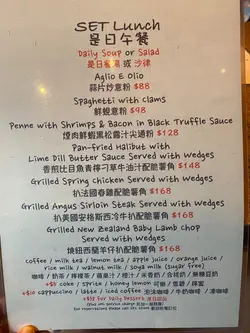 SET Lunch
是日午餐
Daily Soup or Salad
是日餐湯 或 沙律
Aglio E Olio
蒜片炒意粉 $88
Spaghetti with Clams
鮮蜆意粉 $98
Penne with Shrimps & Bacon in Black Truffle Sauce
煙肉鮮蝦黑松露汁尖通粉 $128
Pan-fried Halibut with
Lime Dill Butter Sauce Served with Wedges
香煎比目魚青檸刁草牛油汁配脆薯角 $148
Grilled Spring Chicken Served with Wedges
扒法國春雞配脆薯角 $168
Grilled Angus Sirloin Steak Served with Wedges
扒美國安格斯西冷牛扒配脆薯角 $168
Grilled New Zealand Baby Lamb Chop
Served with Wedges
燒紐西蘭羊仔扒配脆薯角 $168
coffee / milk tea / lemon tea / apple juice / orange juice /
rice milk / walnut milk / soya milk (sugar free)
咖啡 / 奶茶 / 檸檬茶 / 蘋果汁 / 橙汁 /
+$5 coke / sprite / honey lemon 可樂 / 雪碧 /
+$10 cappuccino / latte / iced coffee 泡沫咖啡 / 牛奶咖啡 / 凍咖啡
for Daily Dessert